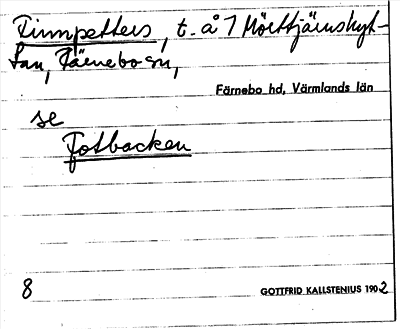 Finnpetters, t. å 7 Mörttjärnshyt-
tan, Färnebo sn,
Färnebo hd, Värmlands län
se
Fotbacken
8
GOTTFRID KALLSTENIUS 1902